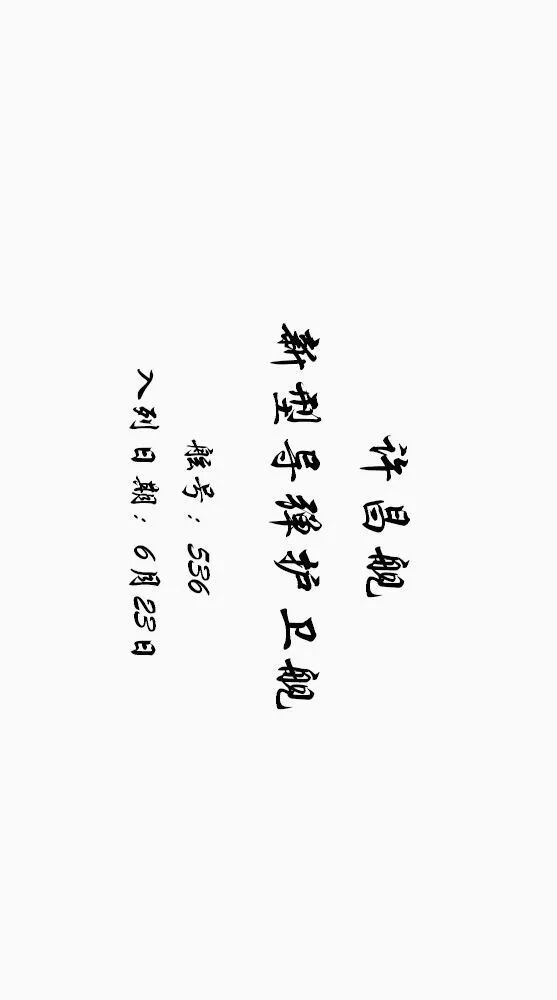 许昌舰
新型导弹护卫舰
舷号：536
入列日期：6月23日